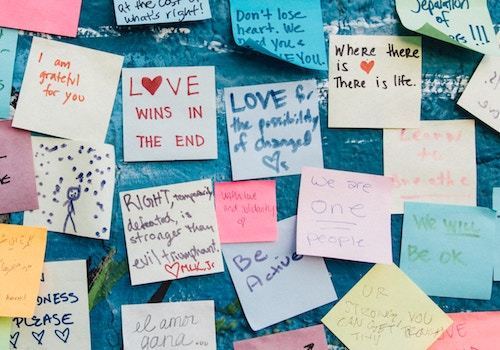 at the cost of
what's right!
Don't lose
heart. We
need you &
LOVE YOU.
Separation
of
!!!
I am
grateful
for you
L❤VE
WINS IN
THE END
LOVE &
the possibility
of change!
♡s
Where there
is ❤
There is life.
Learn
to
Breathe
RIGHT, temporarily
defeated, is
stronger than
evil triumphant.
♡MLK, Jr
with love
and solidarity
We are
one
people
We WILL
Be OK
Be
Active
UR
STRONG, YOU
CAN GET
THIS
PLEASE
♡ ♡ ♡
el amor
gana...